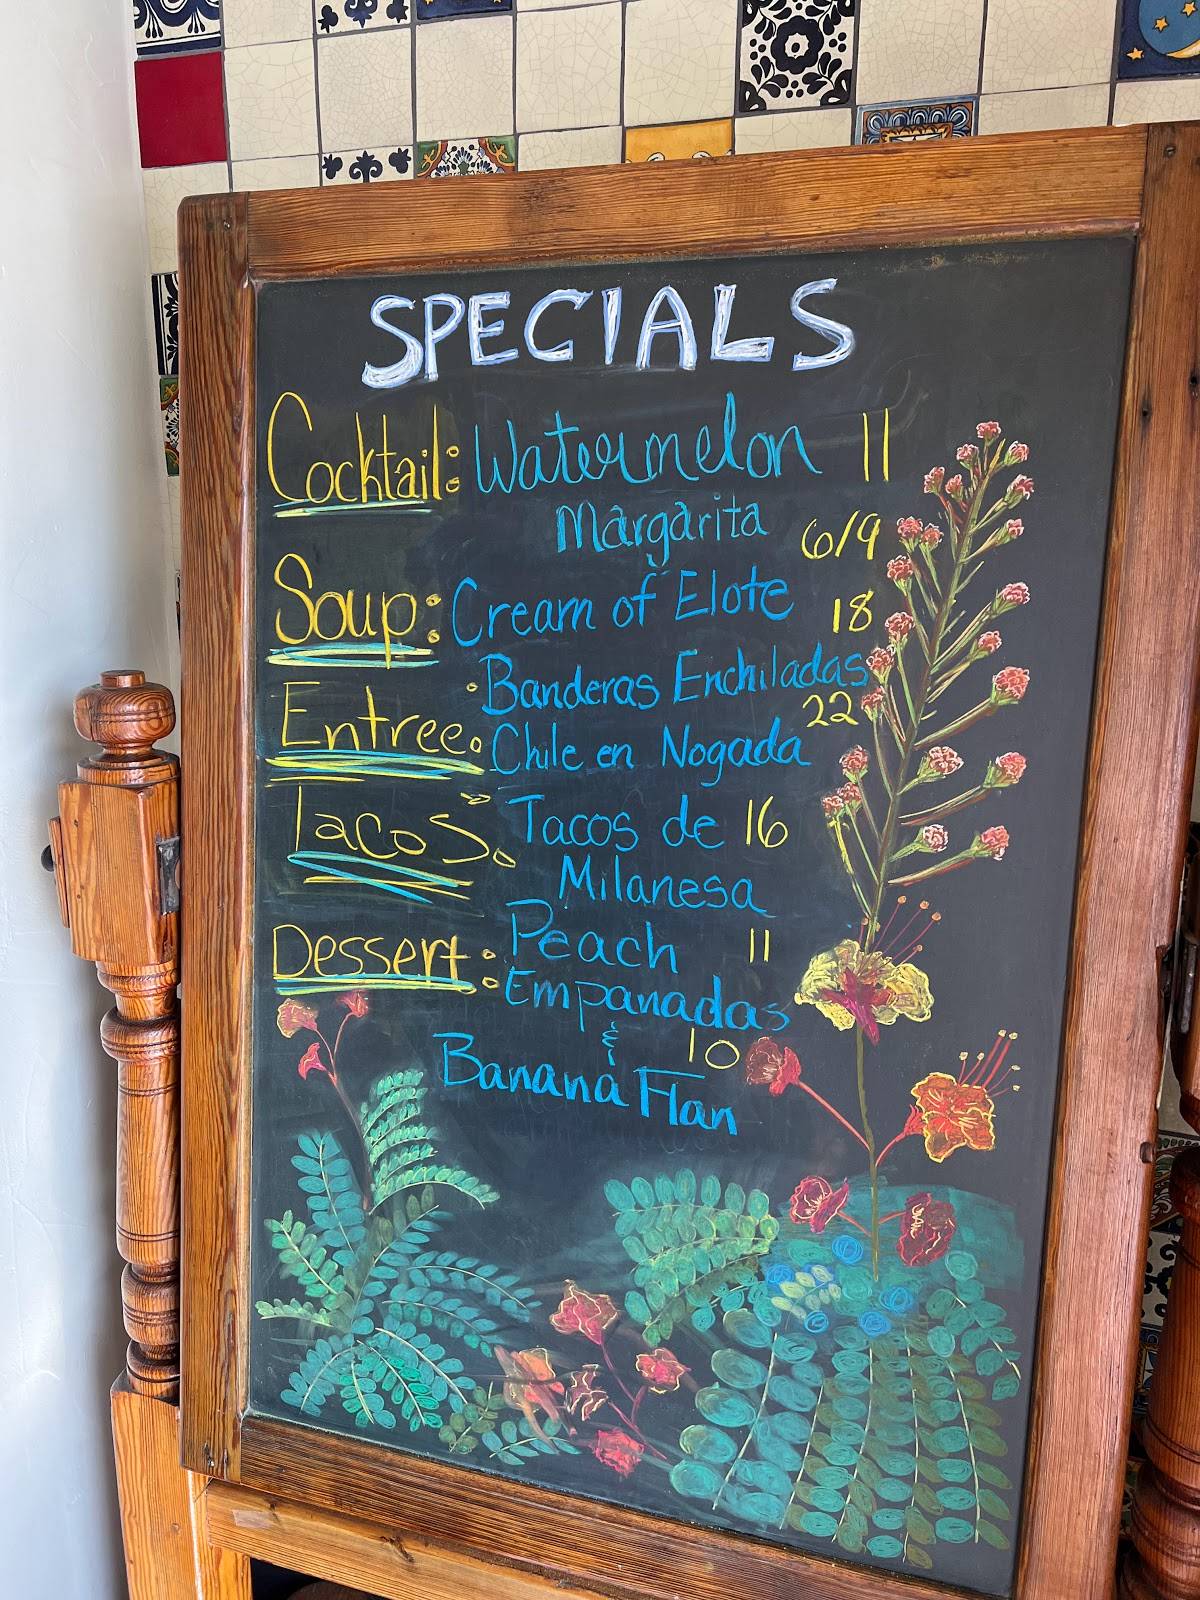 SPECIALS
Cocktail: Watermelon 11
Margarita
6/9
Soup: Cream of Elote
18
• Banderas Enchiladas
22
Entree: Chile en Nogada
Tacos: Tacos de 16
Milanesa
Dessert: Peach 11
Empanadas
& 10
Banana Flan